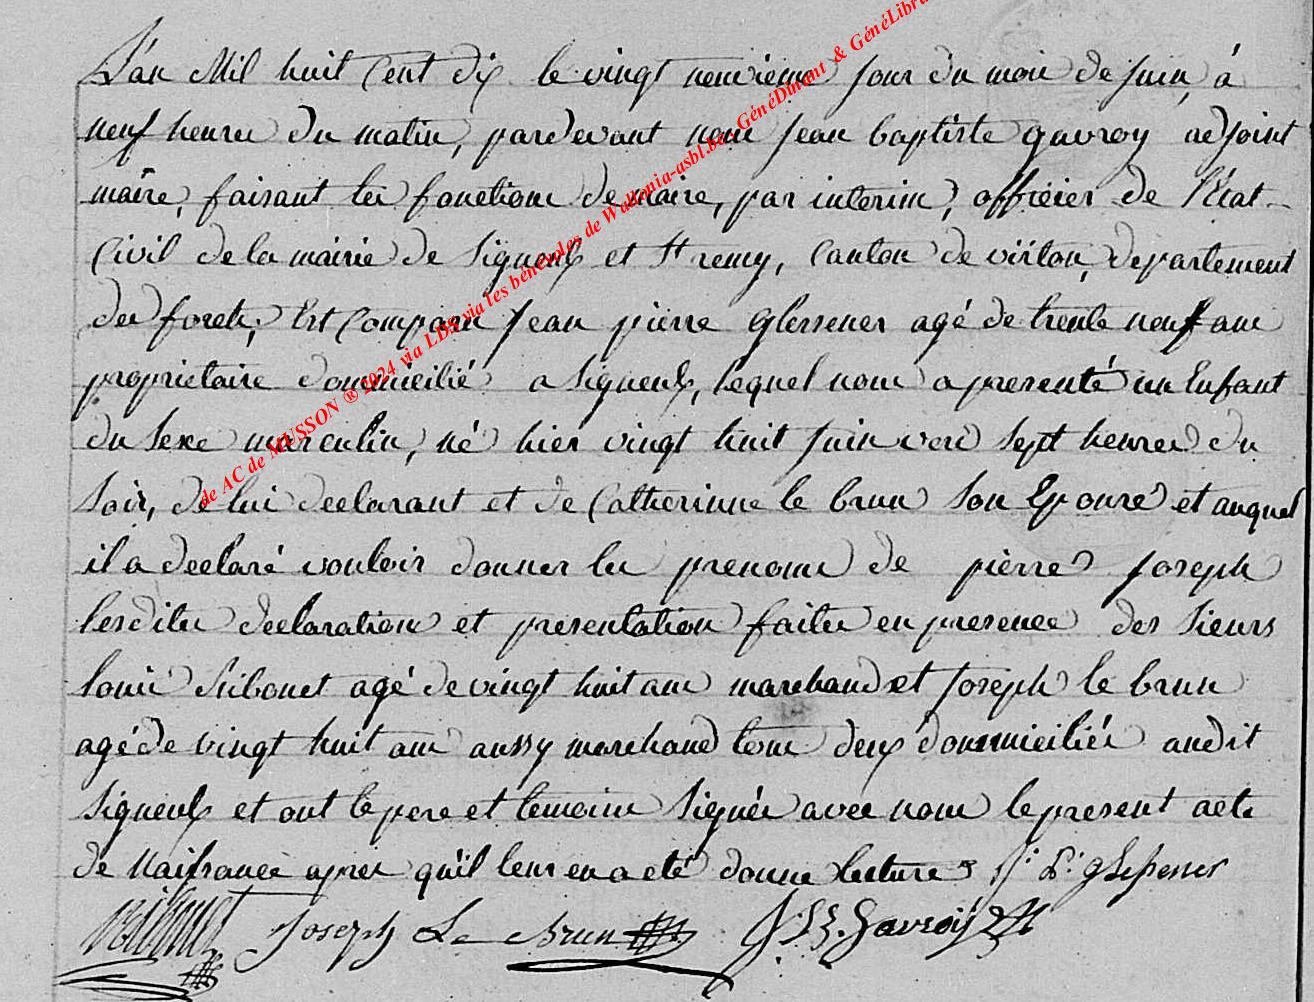 L'an Mil huit Cent dix le vingt neuvieme Jour du mois de Juin, à
neuf heures du matin, pardevant nous Jean baptiste gavroy adjoint
maire, faisant les fonctions de maire, par interim, officier de l'Etat
Civil de la mairie de Signeulx et St remy, Canton de virton, departement
des forets, Est Comparu Jean pierre glessener agé de trente neuf ans
proprietaire domicilié a Signeulx, lequel nous a presenté un Enfant
du Sexe masculin, né hier vingt huit Juin vers sept heures du
Soir, de lui declarant et de Catherinne le brun Son Epouse et auquel
il a declaré vouloir donner les prenoms de pierre Joseph
lesdites declaration et presentation faites en presence des Sieurs
louis agé de vingt huit ans marchand et Joseph le brun
agé de vingt huit ans aussy marchand tous deux domiciliés audit
Signeulx et ont le pere et temoins Signés avec nous le present acte
de Naissance apres qu'il leur en a eté donne lecture J: P: glessener
Joseph Le Brun J. B. Gavroÿ
de AC de MUSSON ® 2024 via LDS via les bénévoles de Wallonia-asbl.be, GénéDinant & GénéLibra